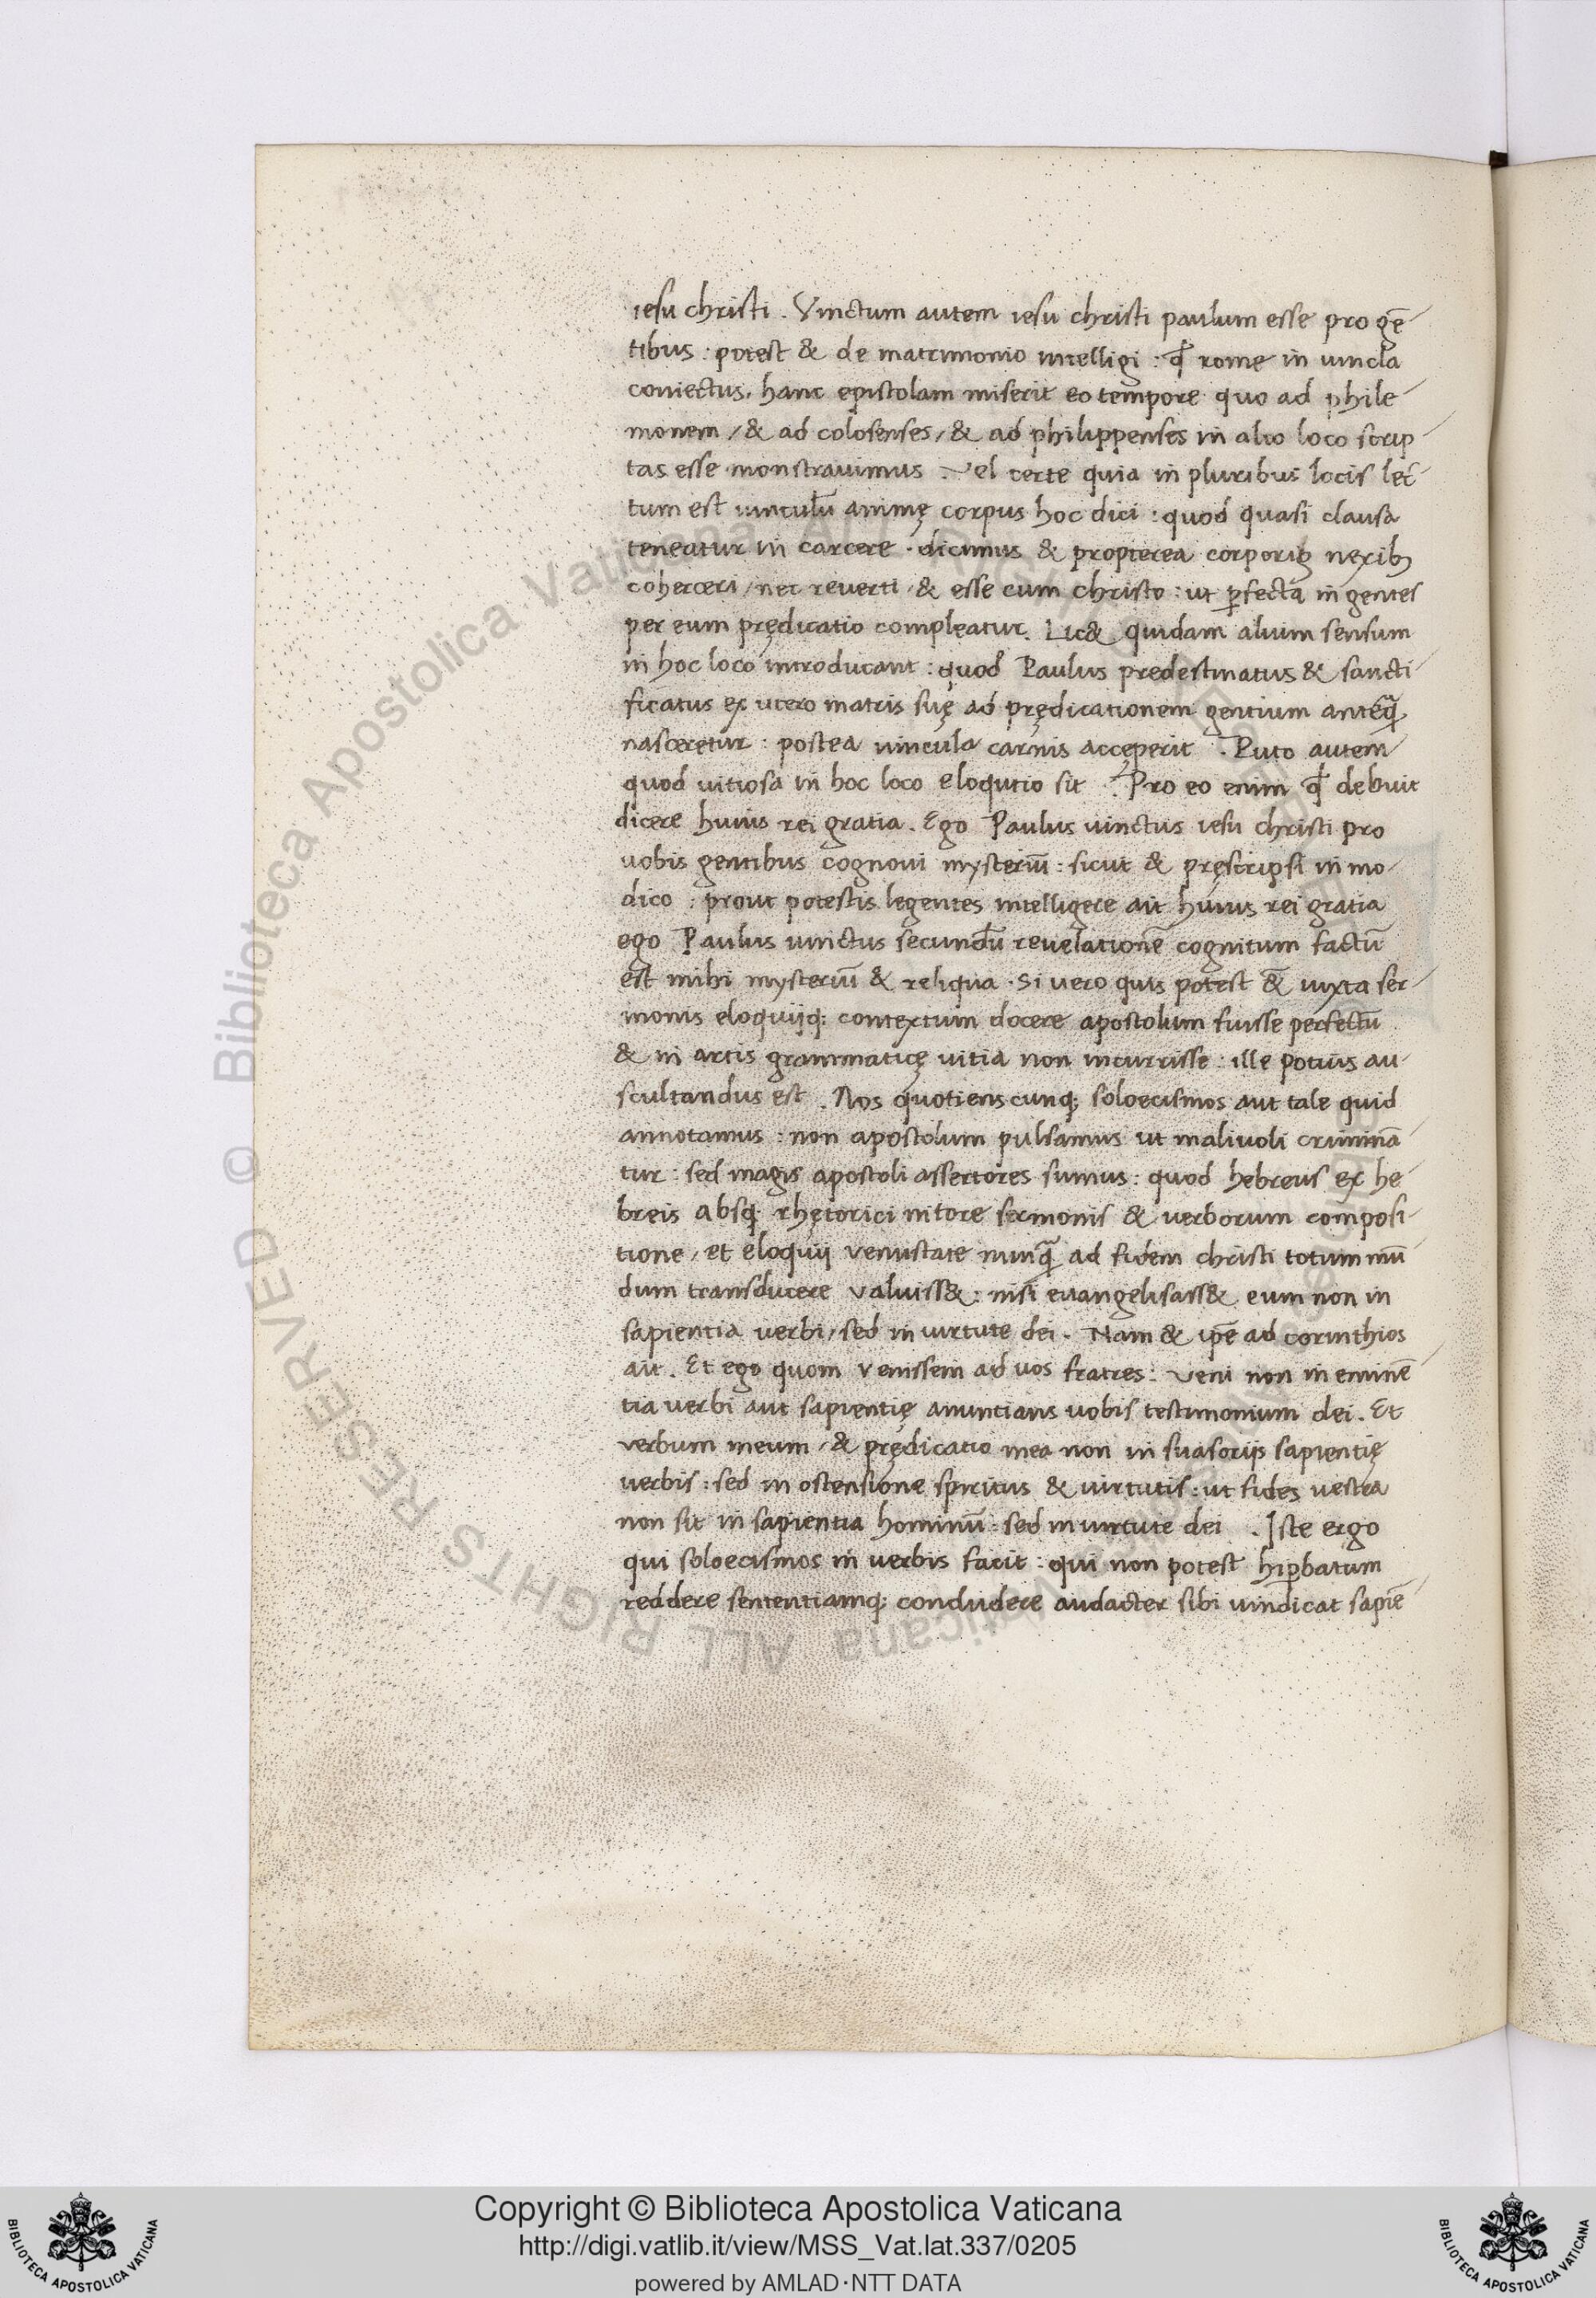 iesu christi . Vinctum autem iesu christi paulum esse pro gē-
tibus : potest & de matrimonio intelligi : qđ rome in uincla
coniectus . hanc epistolam miserit eo tempore quo ad phile-
monem / & ad colosenses / & ad philippenses in alio loco scrip-
tas esse monstrauimus . Vel certe quia in pluribus locis lec-
tum est uinculū animę corpus hoc dici : quod quasi clausa
teneatur in carcere . dicimus & propterea corporis nexibꝫ
coherceri / nec reuerti / & esse cum christo : ut ꝑfecta in gentes
per eum prędicatio compleatur . Lic& quidam alium sensum
in hoc loco introducant : quod Paulus predestinatus & sancti-
ficatus ex utero matris suę ad prędicationem gentium anteq̄
nasceretur : postea uincula carnis acceperit . Puto autem
quod uitiosa in hoc loco eloqutio sit . Pro eo enim qđ debuit
dicere huius rei gratia . Ego Paulus uinctus iesu christi pro
uobis gentibus cognoui mysteriū : sicut & pręscripsi in mo-
dico : prout potestis legentes intelligere ait huius rei gratia
ego Paulus uinctus secundū reuelationē cognitum factū
est mihi mysteriū & reliqua . Si vero quis potest & iuxta ser-
monis eloquijq; contextum docere apostolum fuisse perfectū
& in artis grammaticę uitia non incurrisse : ille potius au-
scultandus est . Nos quotienscunq; soloecismos aut tale quid
annotamus : non apostolum pulsamus ut maliuoli criminā-
tur : sed magis apostoli assertores sumus : quod hebreus ex he-
breis absq; rhętorici nitore sermonis & verborum composi-
tione / et eloquij venustate nunq̄ ad fidem christi totum mū-
dum transducere valuiss& : nisi euangelisass& eum non in
sapientia uerbi / sed in uirtute dei . Nam & ipē ad corinthios
ait . Et ego quom venissem ad uos fratres : veni non in eminē-
tia verbi aut sapientię anuntians uobis testimonium dei . Et
verbum meum / & prędicatio mea non in suasorijs sapientię
uerbis : sed in ostensione spiritus & uirtutis : ut fides uestra
non sit in sapientia hominū : sed in uirtute dei . Iste ergo
qui soloecismos in uerbis facit : qui non potest hiꝑbatum
reddere sententiamq; concludere audacter sibi uindicat sapiē-
© Biblioteca Apostolica Vaticana ALL RIGHTS RESERVED
Copyright © Biblioteca Apostolica Vaticana
http://digi.vatlib.it/view/MSS_Vat.lat.337/0205
powered by AMLAD·NTT DATA
BIBLIOTECA APOSTOLICA VATICANA
BIBLIOTECA APOSTOLICA VATICANA